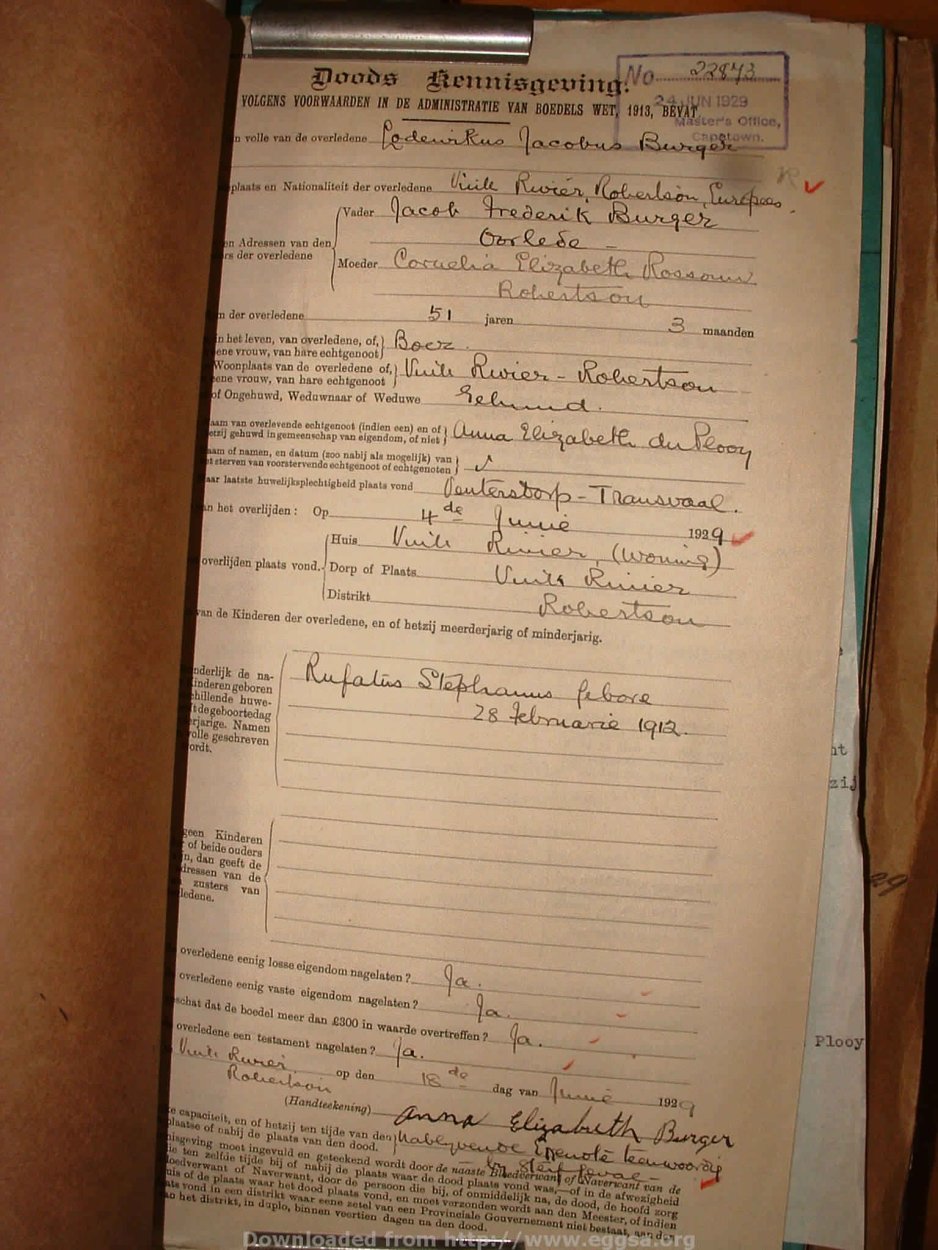 Doods Kennisgeving.
No 22873
24 JUN 1929
Master's Office,
Capetown.
VOLGENS VOORWAARDEN IN DE ADMINISTRATIE VAN BOEDELS WET, 1913, BEVAT
n volle van de overledene Lodewikus Jacobus Burger
plaats en Nationaliteit der overledene Vink Rivier, Robertson, Europees.
Vader Jacob Frederik Burger
Oorlede -
en Adressen van den
rs der overledene
Moeder Cornelia Elizabeth Rossouw
Robertson
n der overledene 51 jaren 3 maanden
n het leven, van overledene, of,
ene vrouw, van hare echtgenoot
Boer.
Woonplaats van de overledene of,
ene vrouw, van hare echtgenoot
Vink Rivier - Robertson
of Ongehuwd, Weduwnaar of Weduwe Gehuud.
aam van overlevende echtgenoot (indien een) en of
etzij gehuwd in gemeenschap van eigendom, of niet
Anna Elizabeth du Plooy
aam of namen, en datum (zoo nabij als mogelijk) van
et sterven van voorstervende echtgenoot of echtgenoten
aar laatste huwelijksplechtigheid plaats vond Venterstorp - Transvaal.
an het overlijden: Op 4de Junie 1929
Huis Vink Rivier (Woning)
overlijden plaats vond. Dorp of Plaats Vink Rivier
Distrikt Robertson
van de Kinderen der overledene, en of hetzij meerderjarig of minderjarig.
nderlijk de na-
inderen geboren
chillende huwe-
t de geboortedag
erjarige. Namen
volle geschreven
ordt.
Rufatus Stephanus gebore
28 Februarie 1912.
geen Kinderen
of beide ouders
n, dan geeft de
dressen van de
zusters van
ledene.
overledene eenig losse eigendom nagelaten? Ja.
overledene eenig vaste eigendom nagelaten? Ja.
schat dat de boedel meer dan £300 in waarde overtreffen? Ja.
overledene een testament nagelaten? Ja.
Vink Rivier op den 18de dag van Junie 1929
Robertson
(Handteekening) Anna Elizabeth Burger
e capaciteit, en of hetzij ten tijde van den
plaatse of nabij de plaats van den dood.
Nablywende Egenote teenwoordig
by sterfgeval -
nisgeving moet ingevuld en geteekend wordt door de naaste Bloedverwant of Naverwant van de
ie ten zelfde tijde bij of nabij de plaats waar de dood plaats vond was,—of in de afwezigheid
loedverwant of Naverwant, door de persoon die bij, of onmiddelijk na, de dood, de hoofd zorg
uis of de plaats waar het dood plaats vond, en moet verzonden wordt aan den Meester, of indien
ats vond in een distrikt waar eene zetel van een Provinciale Gouvernement niet bestaat, aan de
an het distrikt, in duplo, binnen veertien dagen na den dood.
nt
zij
Plooy
Downloaded from http://www.eggsa.org